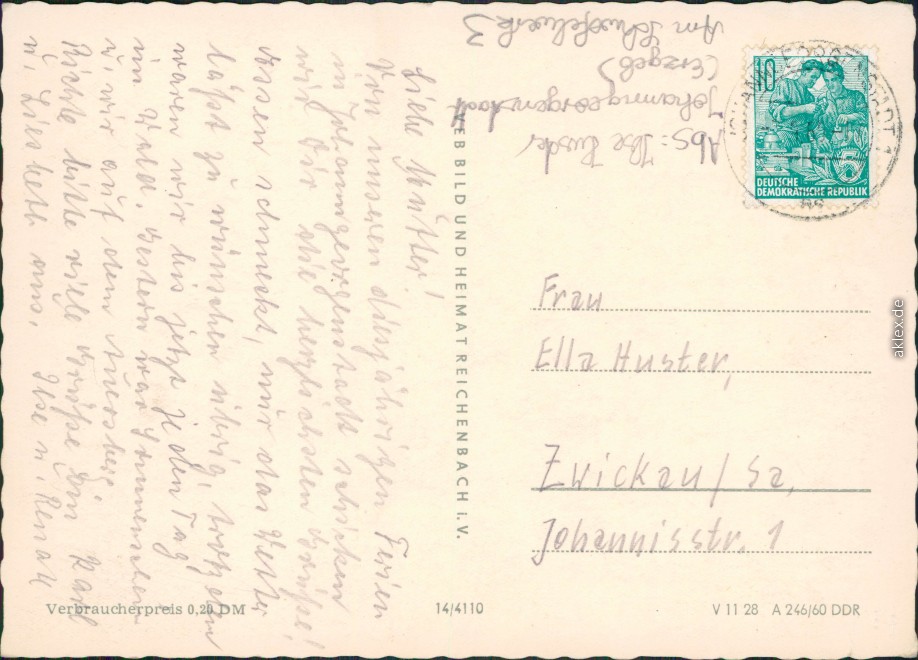 Liebe Mutter!
Von unseren diesjährigen Ferien
in Johanngeorgenstadt schicken
wir Dir die herzlichsten Grüße!
Essen schmeckt, nur das Wetter
läßt zu wünschen übrig, trotzdem
waren wir bis jetzt jeden Tag
im Wald. Gestern war Sonnenschein
u. wir auf dem Auersberg.
Richte bitte viele Grüße bei Karl
u. Liesbeth aus. Ilse u. Renate
VEB BILD UND HEIMAT REICHENBACH I. V.
Abs: Ilse
Johanngeorgenstadt
(Erzgeb)
Am
10
DEUTSCHE
DEMOKRATISCHE REPUBLIK
JOHANNGEORGENSTADT 1
Frau
Ella Huster,
Zwickau/Sa,
Johannisstr. 1
Verbraucherpreis 0,20 DM
14/4110
V 11 28 A 246/60 DDR
aklex.de